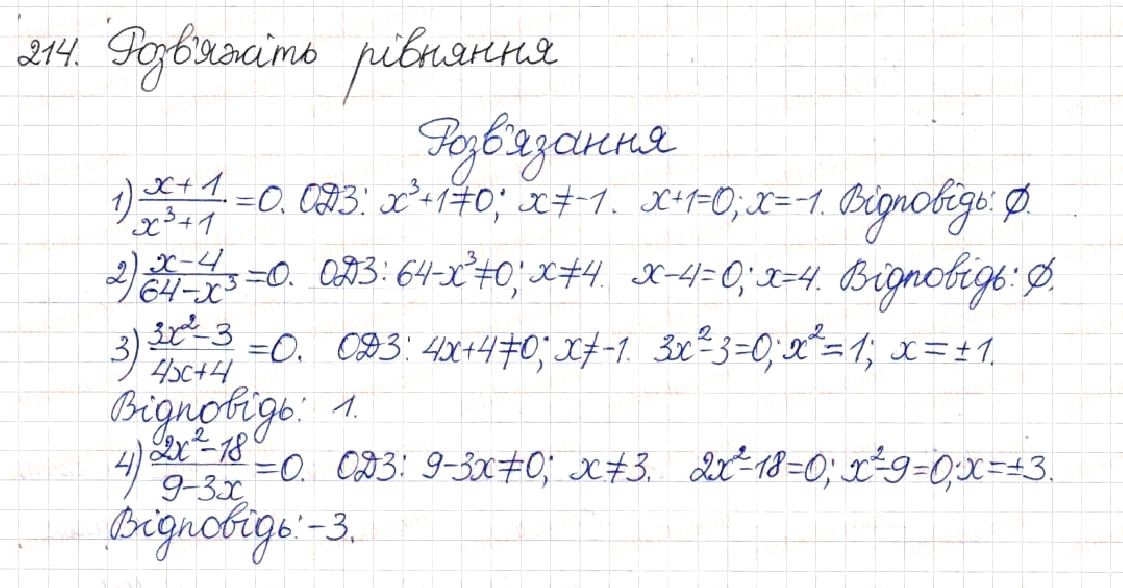 214. Розв'яжіть рівняння
Розв'язання
1) (x+1)/(x³+1) = 0. ОДЗ: x³+1≠0; x≠-1. x+1=0; x=-1. Відповідь: ∅.
2) (x-4)/(64-x³) = 0. ОДЗ: 64-x³≠0; x≠4. x-4=0; x=4. Відповідь: ∅.
3) (3x²-3)/(4x+4) = 0. ОДЗ: 4x+4≠0; x≠-1. 3x²-3=0; x²=1; x=±1.
Відповідь: 1.
4) (2x²-18)/(9-3x) = 0. ОДЗ: 9-3x≠0; x≠3. 2x²-18=0; x²-9=0; x=±3.
Відповідь: -3.